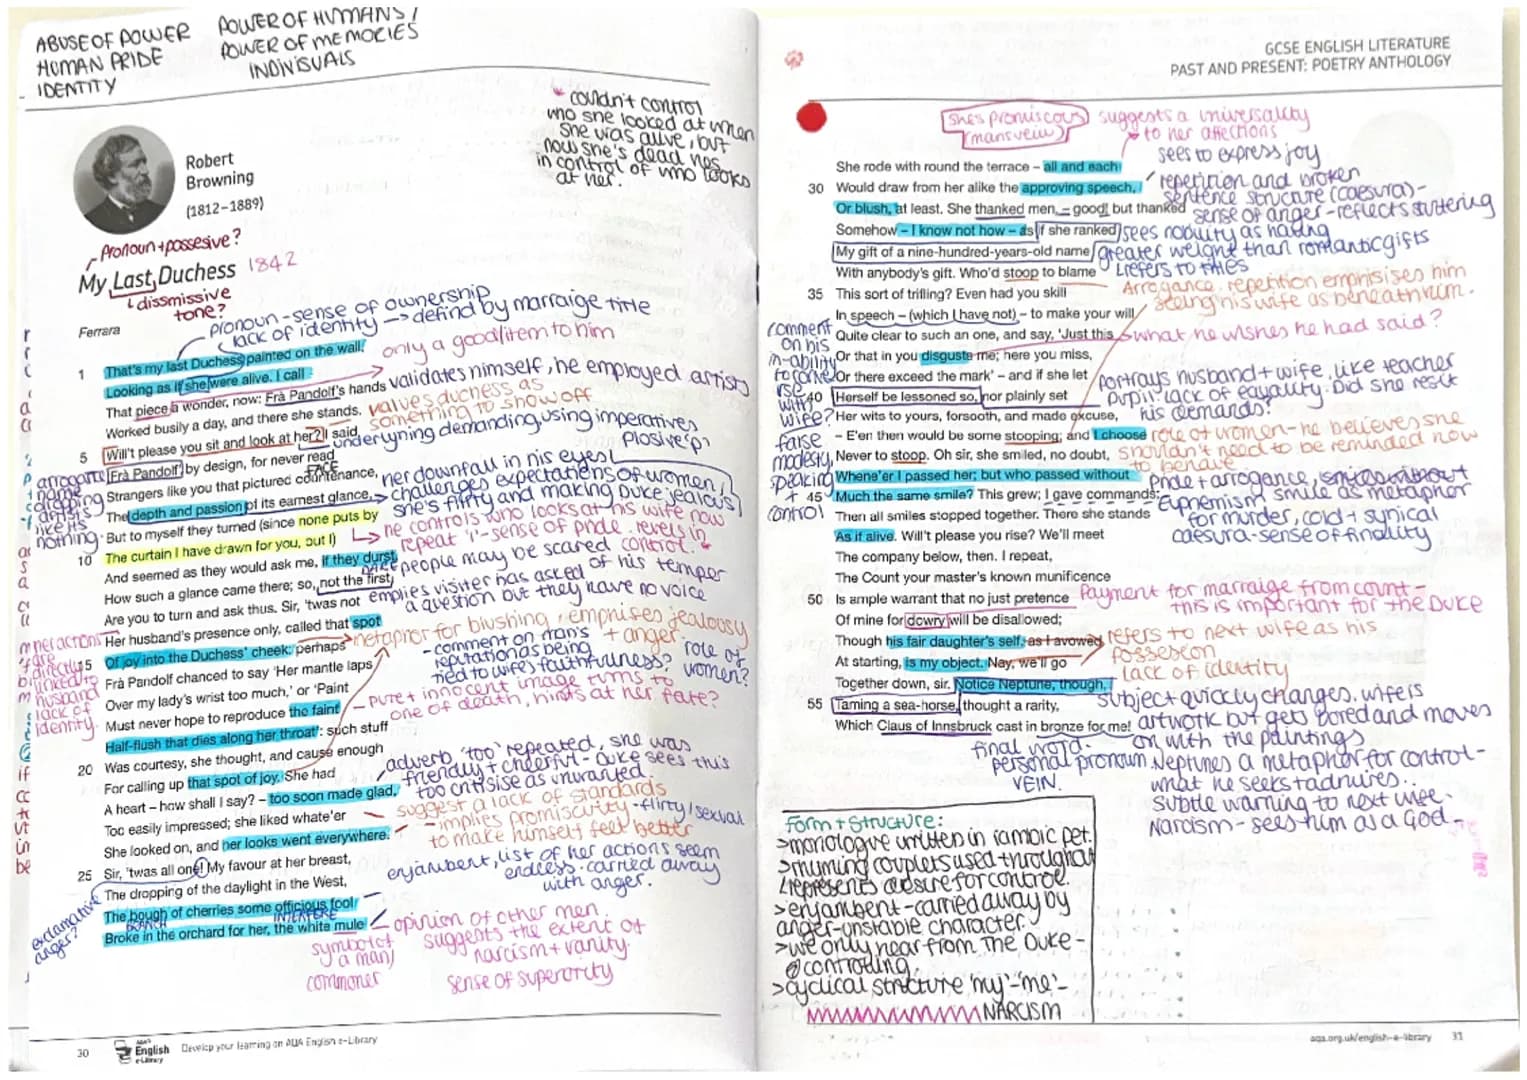 ABUSE OF POWER
HUMAN PRIDE
IDENTITY
POWER OF HUMANS /
POWER OF MEMORIES
INDIVISUALS
couldn't control
who she looked at when
she was alive, but
now she's dead hes
in control of who looks
at her.
Robert
Browning
(1812–1889)
Pronoun + possesive?
My Last Duchess 1842
dissmissive
tone?
Ferrara
pronoun - sense of ownership
lack of identity → defind by marraige title
only a good/item to him
1 That's my last Duchess painted on the wall,
Looking as if she were alive. I call
That piece a wonder, now: Frà Pandolf's hands
validates himself, he employed artists
Worked busily a day, and there she stands.
values duchess as
something to show off
5 Will't please you sit and look at her? I said
underlyning demanding, using imperatives
plosive 'p'
'Frà Pandolf' by design, for never read
FACE
Strangers like you that pictured countenance,
The depth and passion of its earnest glance,
But to myself they turned (since none puts by
10 The curtain I have drawn for you, but I)
And seemed as they would ask me, if they durst,
DARE
How such a glance came there; so, not the first
Are you to turn and ask thus. Sir, 'twas not
Her husband's presence only, called that spot
15 Of joy into the Duchess' cheek: perhaps
Frà Pandolf chanced to say 'Her mantle laps
Over my lady's wrist too much,' or 'Paint
Must never hope to reproduce the faint
Half-flush that dies along her throat': such stuff
20 Was courtesy, she thought, and cause enough
For calling up that spot of joy. She had
A heart – how shall I say? – too soon made glad,
Too easily impressed; she liked whate'er
She looked on, and her looks went everywhere.
25 Sir, 'twas all one! My favour at her breast,
The dropping of the daylight in the West,
The bough of cherries some officious fool
BRANCH
INTERFERE
Broke in the orchard for her, the white mule
arrogant
name
dropping
artists
like its
nothing.
her downfall in his eyes!
challenges expectations of women,
she's flirty and making Duke jealous
he controls who looks at his wife now
repeat 'I' - sense of pride. revels in
control.
people may be scared of his temper
emplies visiter has asked
a question but they have no voice
metaphor for blushing, emphises jealousy
+ anger.
- comment on man's
reputation as being
tied to wife's faithfulness?
role of
women?
her actions
are
directly
linked to
husband
lack of
identity.
- pure + innocent image turns to
one of death, hints at her fate?
adverb 'too' repeated, she was
friendly + cheerful - Duke sees this
too critisise as unwanted.
suggest a lack of standards
- implies promiscuity - flirty/sexual
to make himself feel better
enjambent, list of her actions seem
endless - carried away
with anger.
exclamative
anger?
opinion of other men.
suggests the extent of
narcism + vanity.
sense of superority
symbol of
a man/
commoner
30
AQA's
English
e-Library
Develop your learning on AQA English e-Library
GCSE ENGLISH LITERATURE
PAST AND PRESENT: POETRY ANTHOLOGY
She's promiscous
(mans veiw)
suggests a universality
to her affections
sees to express joy
She rode with round the terrace – all and each
30 Would draw from her alike the approving speech,
Or blush, at least. She thanked men, – good! but thanked
Somehow – I know not how – as if she ranked
My gift of a nine-hundred-years-old name
With anybody's gift. Who'd stoop to blame
35 This sort of trifling? Even had you skill
In speech – (which I have not) – to make your will
Quite clear to such an one, and say, 'Just this
Or that in you disgusts me; here you miss,
Or there exceed the mark' – and if she let
40 Herself be lessoned so, nor plainly set
Her wits to yours, forsooth, and made excuse,
– E'en then would be some stooping; and I choose
Never to stoop. Oh sir, she smiled, no doubt,
Whene'er I passed her; but who passed without
45 Much the same smile? This grew; I gave commands;
Then all smiles stopped together. There she stands
As if alive. Will't please you rise? We'll meet
The company below, then. I repeat,
The Count your master's known munificence
50 Is ample warrant that no just pretence
Of mine for dowry will be disallowed;
Though his fair daughter's self, as I avowed
At starting, is my object. Nay, we'll go
Together down, sir. Notice Neptune, though,
55 Taming a sea-horse, thought a rarity,
Which Claus of Innsbruck cast in bronze for me!
repetition and broken
sentence structure (caesura) -
sense of anger - reflects stuttering
sees nobility as having
greater weight than romantic gifts
refers to titles
Arrogance. repetition emphisises him
seeing his wife as beneath him.
what he wishes he had said?
comment
on his
in-ability
to
with
wife?
false
modesty,
speaking
+
control
portrays husband + wife, like teacher
pupil lack of eqyality. Did she resist
his demands?
role of women - he believes she
shouldn't need to be reminded how
to behave
Pride + arrogance,
Euphemism, smile as metaphor
for murder, cold + synical
caesura - sense of finality
Payment for marraige from count -
this is important for the Duke
refers to next wife as his
possession
lack of identity
subject quickly changes. wife is
artwork but gets bored and moves
on with the paintings
Neptunes a metaphor for control -
what he seeks + admires.
subtle warning to next wife.
Narcism - sees him as a God -
final word.
personal pronoun.
VEIN.
Form + Structure:
>monologue written in iambic pet.
>rhyming couplets used throughout
represents desire for control.
>enjambent - carried away by
anger - unstable character.
>we only hear from The Duke -
controlling
>cyclical structure, 'my' - 'me' -
NARCISM
aqa.org.uk/english-e-library 31